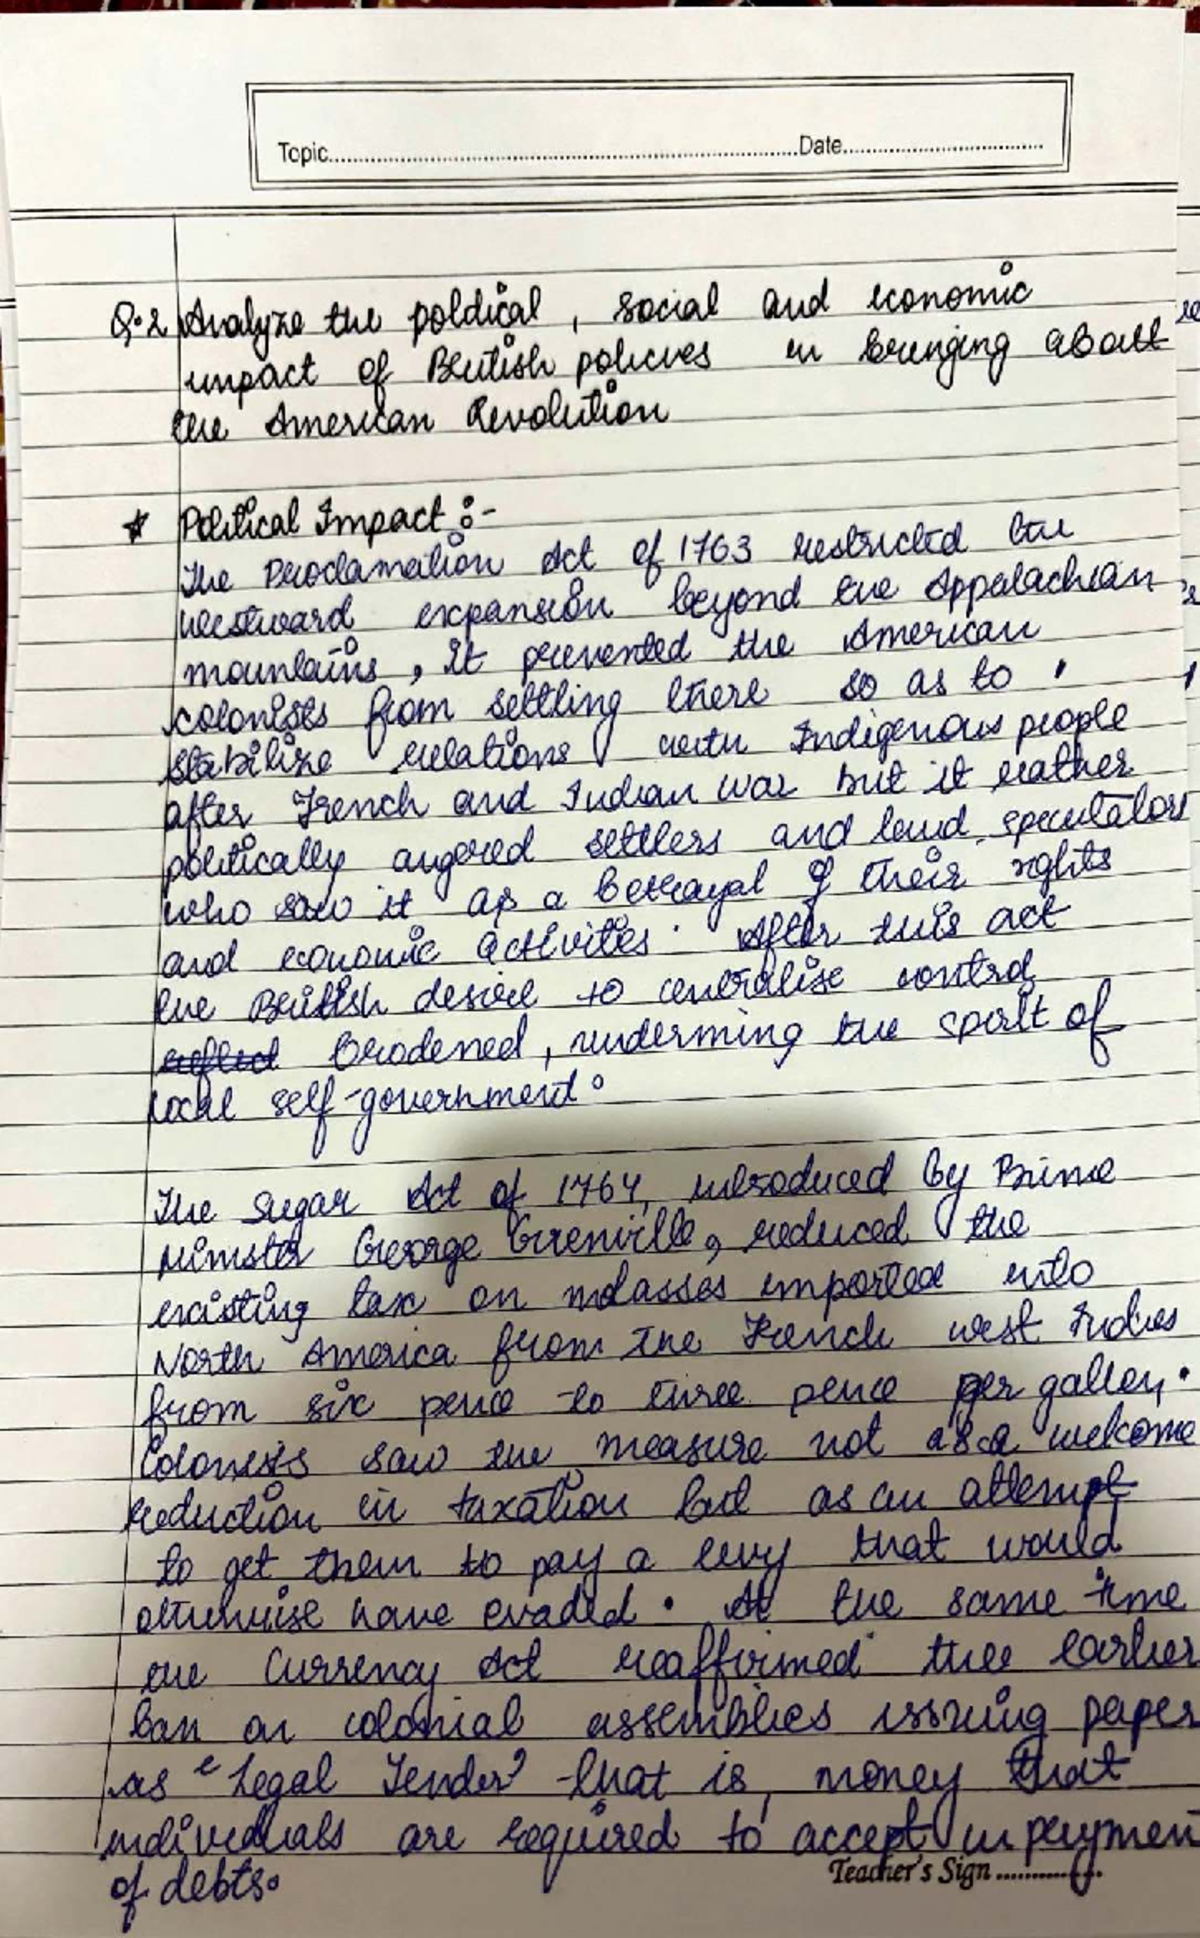 Topic..........Date..........
Q.2 Analyze the poltical, social and economic
impact of British policies in bringing about
the American Revolution
* Political Impact :-
The Proclamation Act of 1763 restricted the
westward expansion beyond the Appalachian
mountains, it prevented the American
colonists from settling there so as to
stabilize relations with Indigenous people
after French and Indian war but it rather
politically angered settlers and land speculators
who saw it as a betrayal of their rights
and economic activites. After this act
the British desire to centralise control
brodened, underming the spirit of
local self-government.
The Sugar Act of 1764, introduced by Prime
Minister George Grenville, reduced the
existing tax on molasses imported into
North America from the French west Indies
from six pence to three pence per gallen.
Colonists saw the measure not as a welcome
reduction in taxation but as an attempt
to get them to pay a levy that would
otherwise have evaded. At the same time
the Currency Act reaffirmed the earlier
ban on colonial assemblies issuing paper
as "Legal Tender" that is, money that
individuals are required to accept in paymen
of debts.
Teacher's Sign ..........